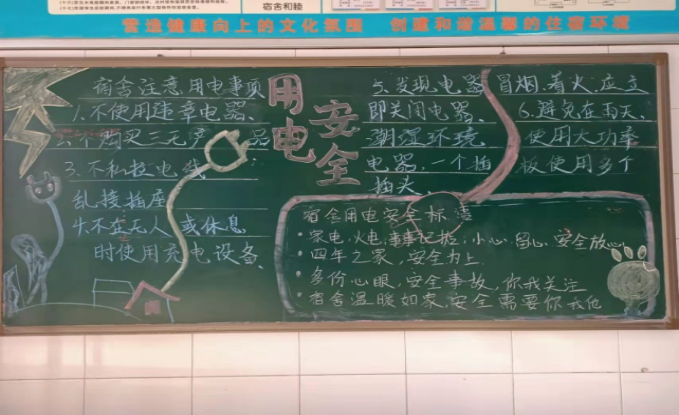 宿舍和睦
营造健康向上的文化氛围 创建和谐温馨的住宿环境
用电
安全
宿舍注意用电事项
1.不使用违章电器、
2.不购买三无产品
3.不私拉电线、
乱接插座
4.不在无人或休息
时使用充电设备、
5.发现电器冒烟、着火,应立
即关闭电器、6.避免在雨天、
潮湿环境 使用大功率
电器、一个插板使用多个
插头、
宿舍用电安全标语
·家电,火电,事事记挂,小心留心,安全放心
·四年之家,安全为上
·多份心眼,安全事故,你我关注
·宿舍温暖如家,安全需要你我他